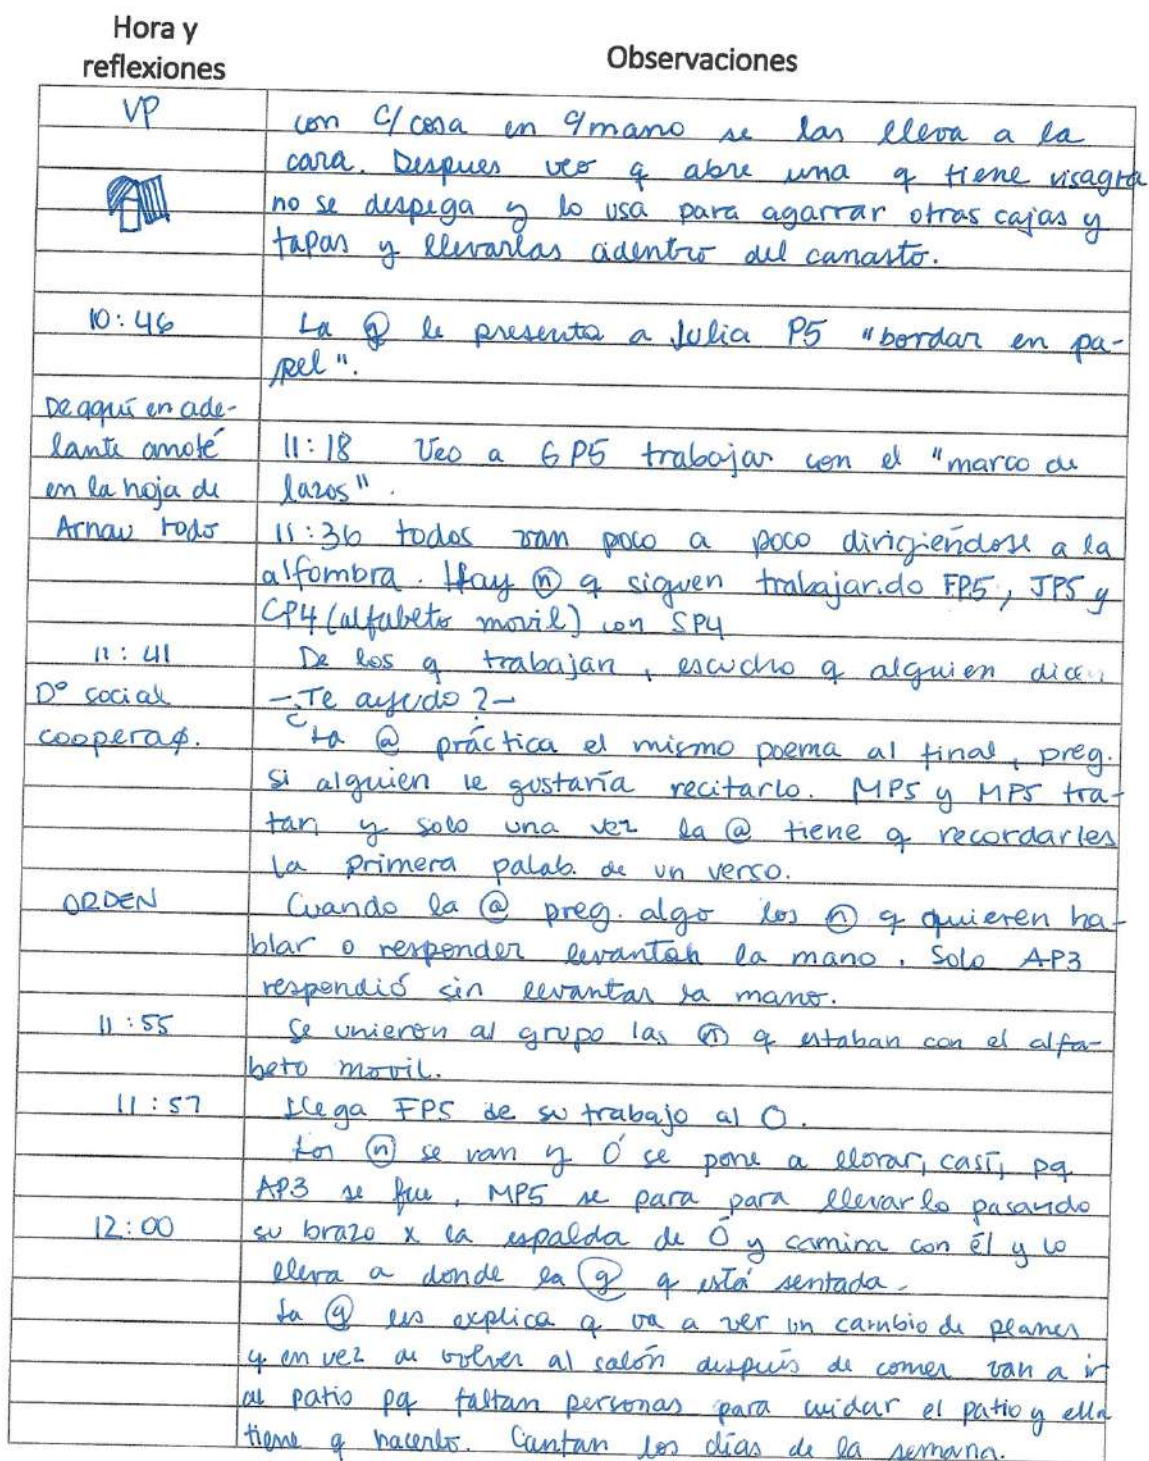 Hora y reflexiones
Observaciones
VP
con c/cosa en c/mano se las lleva a la
cara. Despues veo q abre una q tiene visagra
no se despega y lo usa para agarrar otras cajas y
tapas y llevarlas adentro del canasto.
10:46
La ⓖ le presenta a Julia P5 "bordar en pa-
pel".
De aquí en ade-
lante anoté
en la hoja de
Arnau todo
11:18 Veo a GP5 trabajar con el "marco de
lazos".
11:36 todos van poco a poco dirigiéndose a la
alfombra. Hay ⓝ q siguen trabajando FP5, JP5 y
CP4 (alfabeto movil) con SP4
11:41
De los q trabajan, escucho q alguien dice
-¿Te ayudo?-
Dº social
cooperaç.
La @ práctica el mismo poema al final, preg.
si alguien le gustaría recitarlo. MP5 y MP5 tra-
tan y solo una vez la @ tiene q recordarles
la primera palab. de un verso.
ORDEN
Cuando la @ preg. algo los ⓝ q quieren ha-
blar o responder levantan la mano. Solo AP3
respondió sin levantar la mano.
11:55
Se unieron al grupo las ⓝ q estaban con el alfa-
beto movil.
11:57
Llega FP5 de su trabajo al O.
Los ⓝ se van y Ó se pone a llorar, casí, pq
AP3 se fue, MP5 se para para llevarlo pasando
12:00
su brazo x la espalda de Ó y camina con él y lo
lleva a donde la ⓖ q está sentada.
La ⓖ les explica q va a ver un cambio de planes
y en vez de volver al salón después de comer van a ir
al patio pq faltan personas para cuidar el patio y ella
tiene q hacerlo. Cantan los días de la semana.